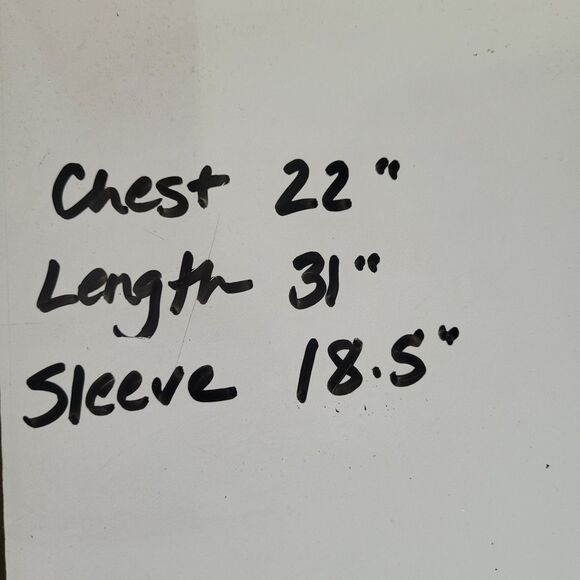 Chest 22"
Length 31"
Sleeve 18.5"